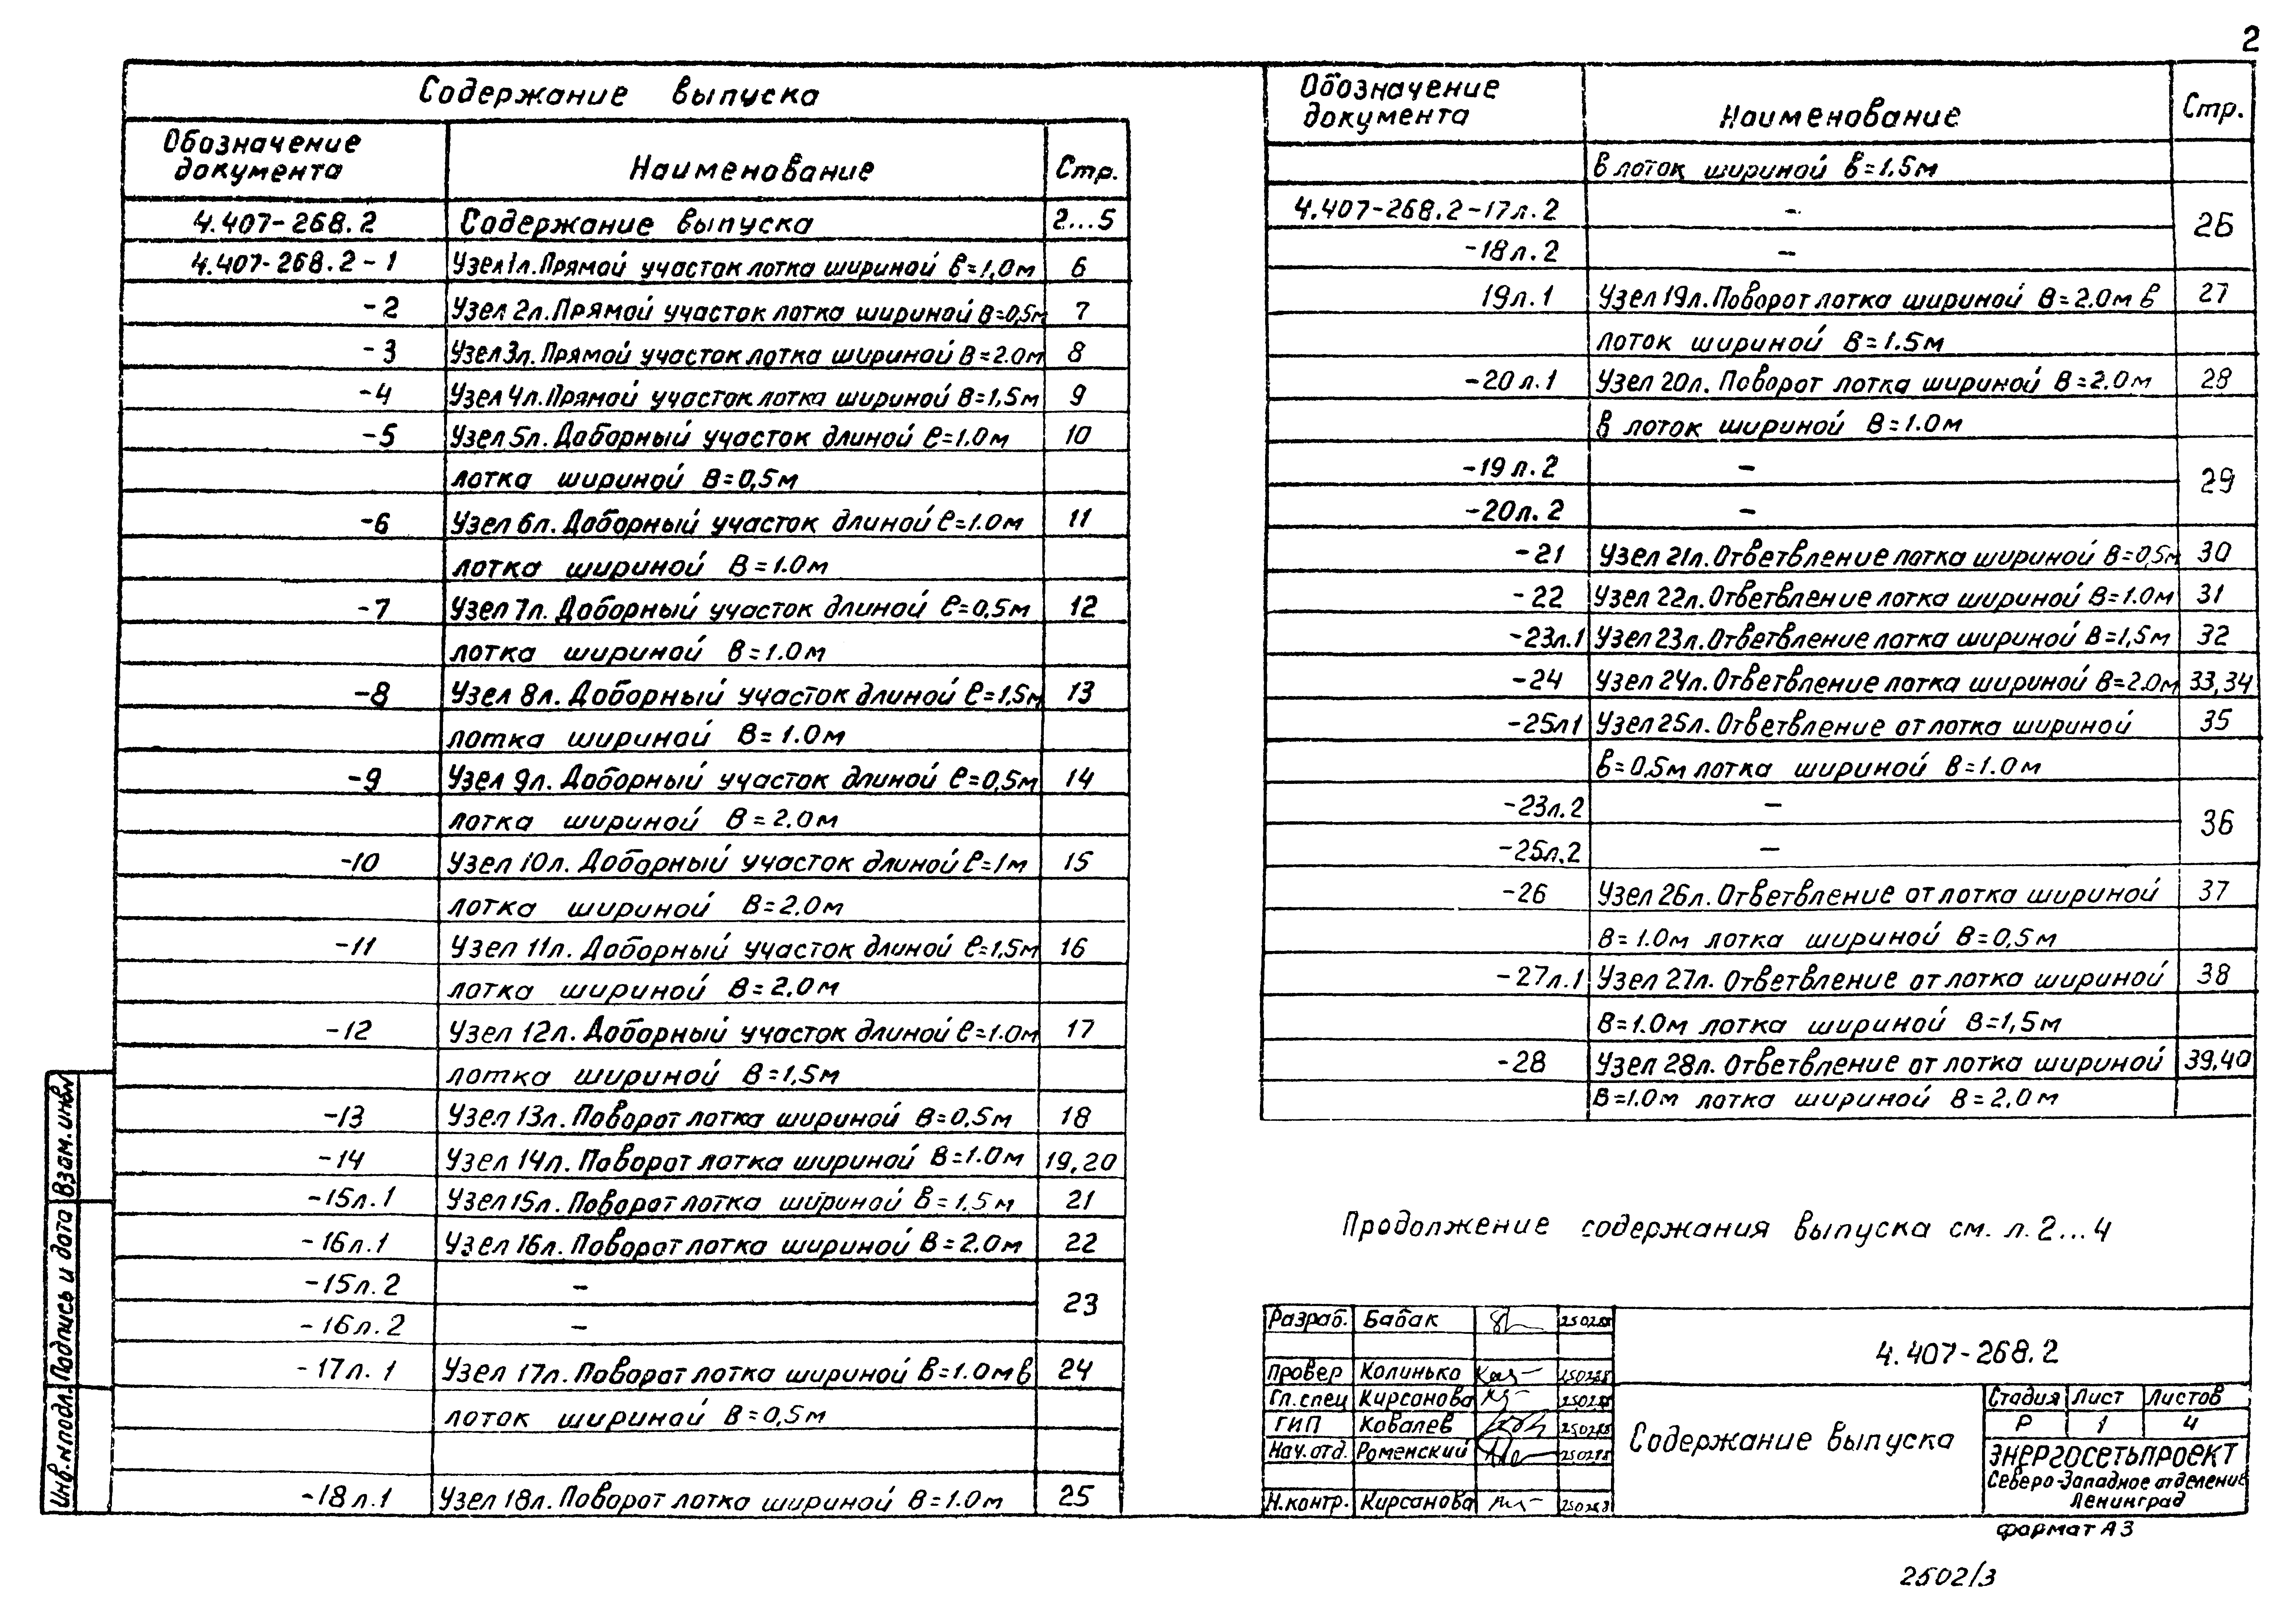 2
Содержание выпуска
Обозначение документа Наименование Стр.
4.407-268.2 Содержание выпуска 2...5
4.407-268.2-1 Узел 1л. Прямой участок лотка шириной В=1,0м 6
-2 Узел 2л. Прямой участок лотка шириной В=0,5м 7
-3 Узел 3л. Прямой участок лотка шириной В=2.0м 8
-4 Узел 4л. Прямой участок лотка шириной В=1,5м 9
-5 Узел 5л. Доборный участок длиной ℓ=1.0м 10
лотка шириной В=0,5м
-6 Узел 6л. Доборный участок длиной ℓ=1.0м 11
лотка шириной В=1.0м
-7 Узел 7л. Доборный участок длиной ℓ=0,5м 12
лотка шириной В=1.0м
-8 Узел 8л. Доборный участок длиной ℓ=1,5м 13
лотка шириной В=1.0м
-9 Узел 9л. Доборный участок длиной ℓ=0,5м 14
лотка шириной В=2.0м
-10 Узел 10л. Доборный участок длиной ℓ=1м 15
лотка шириной В=2.0м
-11 Узел 11л. Доборный участок длиной ℓ=1,5м 16
лотка шириной В=2.0м
-12 Узел 12л. Доборный участок длиной ℓ=1.0м 17
лотка шириной В=1,5м
-13 Узел 13л. Поворот лотка шириной В=0,5м 18
-14 Узел 14л. Поворот лотка шириной В=1.0м 19,20
-15л.1 Узел 15л. Поворот лотка шириной В=1.5м 21
-16л.1 Узел 16л. Поворот лотка шириной В=2.0м 22
-15л.2 –
23
-16л.2 –
-17л.1 Узел 17л. Поворот лотка шириной В=1.0м в 24
лоток шириной В=0,5м
-18л.1 Узел 18л. Поворот лотка шириной В=1.0м 25
Обозначение документа Наименование Стр.
в лоток шириной В=1.5м
4.407-268.2-17л.2 –
26
-18л.2 –
19л.1 Узел 19л. Поворот лотка шириной В=2.0м в 27
лоток шириной В=1.5м
-20л.1 Узел 20л. Поворот лотка шириной В=2.0м 28
в лоток шириной В=1.0м
-19л.2 –
29
-20л.2 –
-21 Узел 21л. Ответвление лотка шириной В=0,5м 30
-22 Узел 22л. Ответвление лотка шириной В=1.0м 31
-23л.1 Узел 23л. Ответвление лотка шириной В=1,5м 32
-24 Узел 24л. Ответвление лотка шириной В=2.0м 33,34
-25л1 Узел 25л. Ответвление от лотка шириной 35
В=0.5м лотка шириной В=1.0м
-23л.2 –
36
-25л.2 –
-26 Узел 26л. Ответвление от лотка шириной 37
В=1.0м лотка шириной В=0,5м
-27л.1 Узел 27л. Ответвление от лотка шириной 38
В=1.0м лотка шириной В=1,5м
-28 Узел 28л. Ответвление от лотка шириной 39,40
В=1.0м лотка шириной В=2.0м
Продолжение содержания выпуска см. л. 2...4
Разраб. Бабак 250288
Провер Колинько 250288
Гл.спец Кирсанова 250288
ГИП Ковалев 250288
Нач.отд. Роменский 250288
Н.контр. Кирсанова 250288
4.407-268.2
Содержание выпуска
Стадия Лист Листов
Р 1 4
ЭНЕРГОСЕТЬПРОЕКТ
Северо-Западное отделение
Ленинград
формат А3
2502/3
Инв.№подл. Подпись и дата Взам.инв№